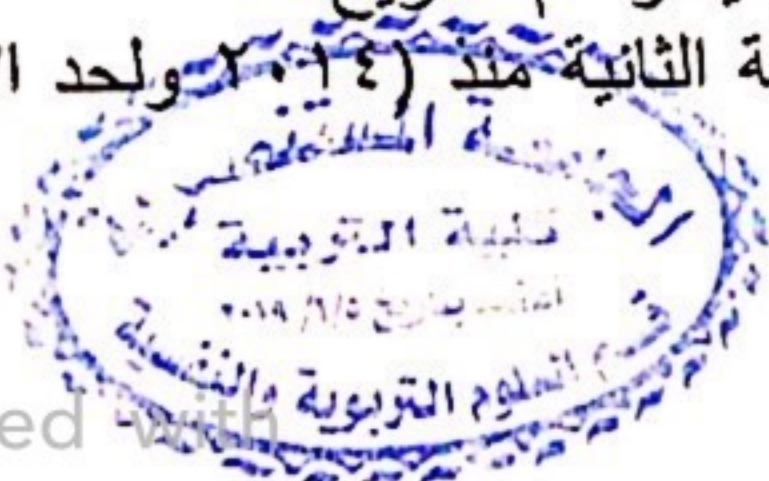 ة الثانية منذ (٢٠١٤ ولحد ا
الجامعة المستنصرية
كلية التربية
بتاريخ ٢٠١٩/٩/٥
قسم العلوم التربوية والنفسية
ed with